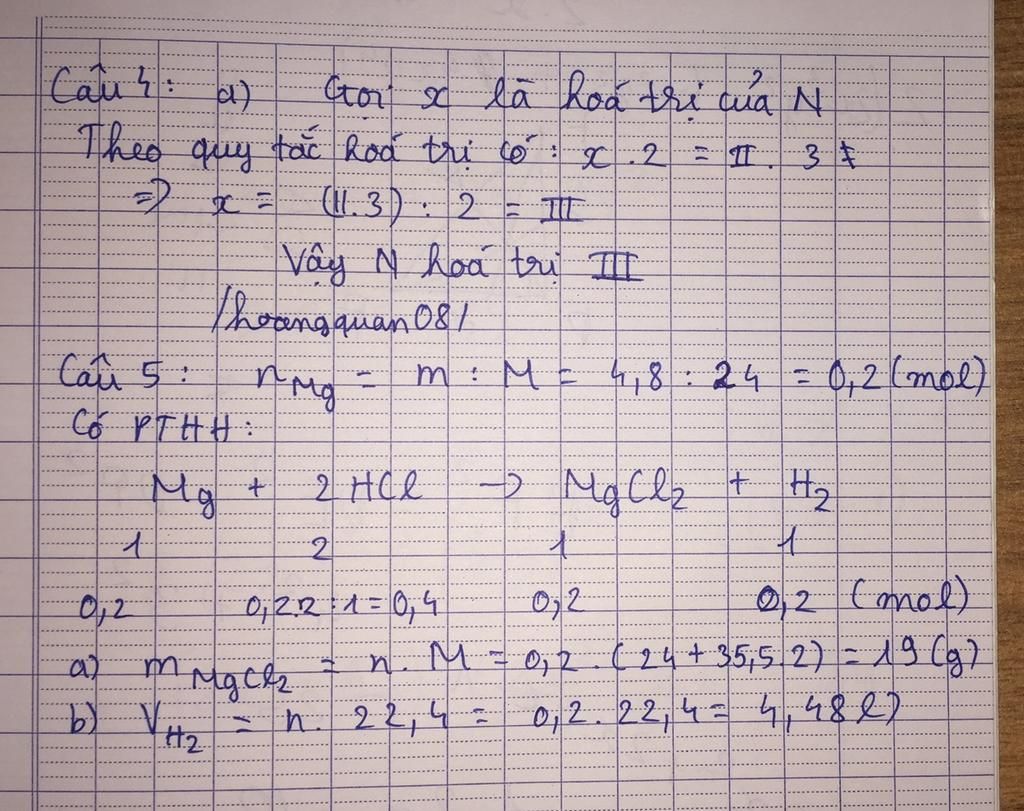 Câu 4: a) Gọi x là hoá trị của N
Theo quy tắc hoá trị có: x . 2 = II . 3
=> x = (II.3) : 2 = III
Vậy N hoá trị III
/hoangquan08/
Câu 5: nMg = m : M = 4,8 : 24 = 0,2 (mol)
Có PTHH:
Mg + 2HCl -> MgCl2 + H2
1 2 1 1
0,2 0,2.2:1=0,4 0,2 0,2 (mol)
a) mMgCl2 = n. M = 0,2 . (24+35,5.2) = 19 (g)
b) VH2 = n. 22,4 = 0,2. 22,4 = 4,48l)